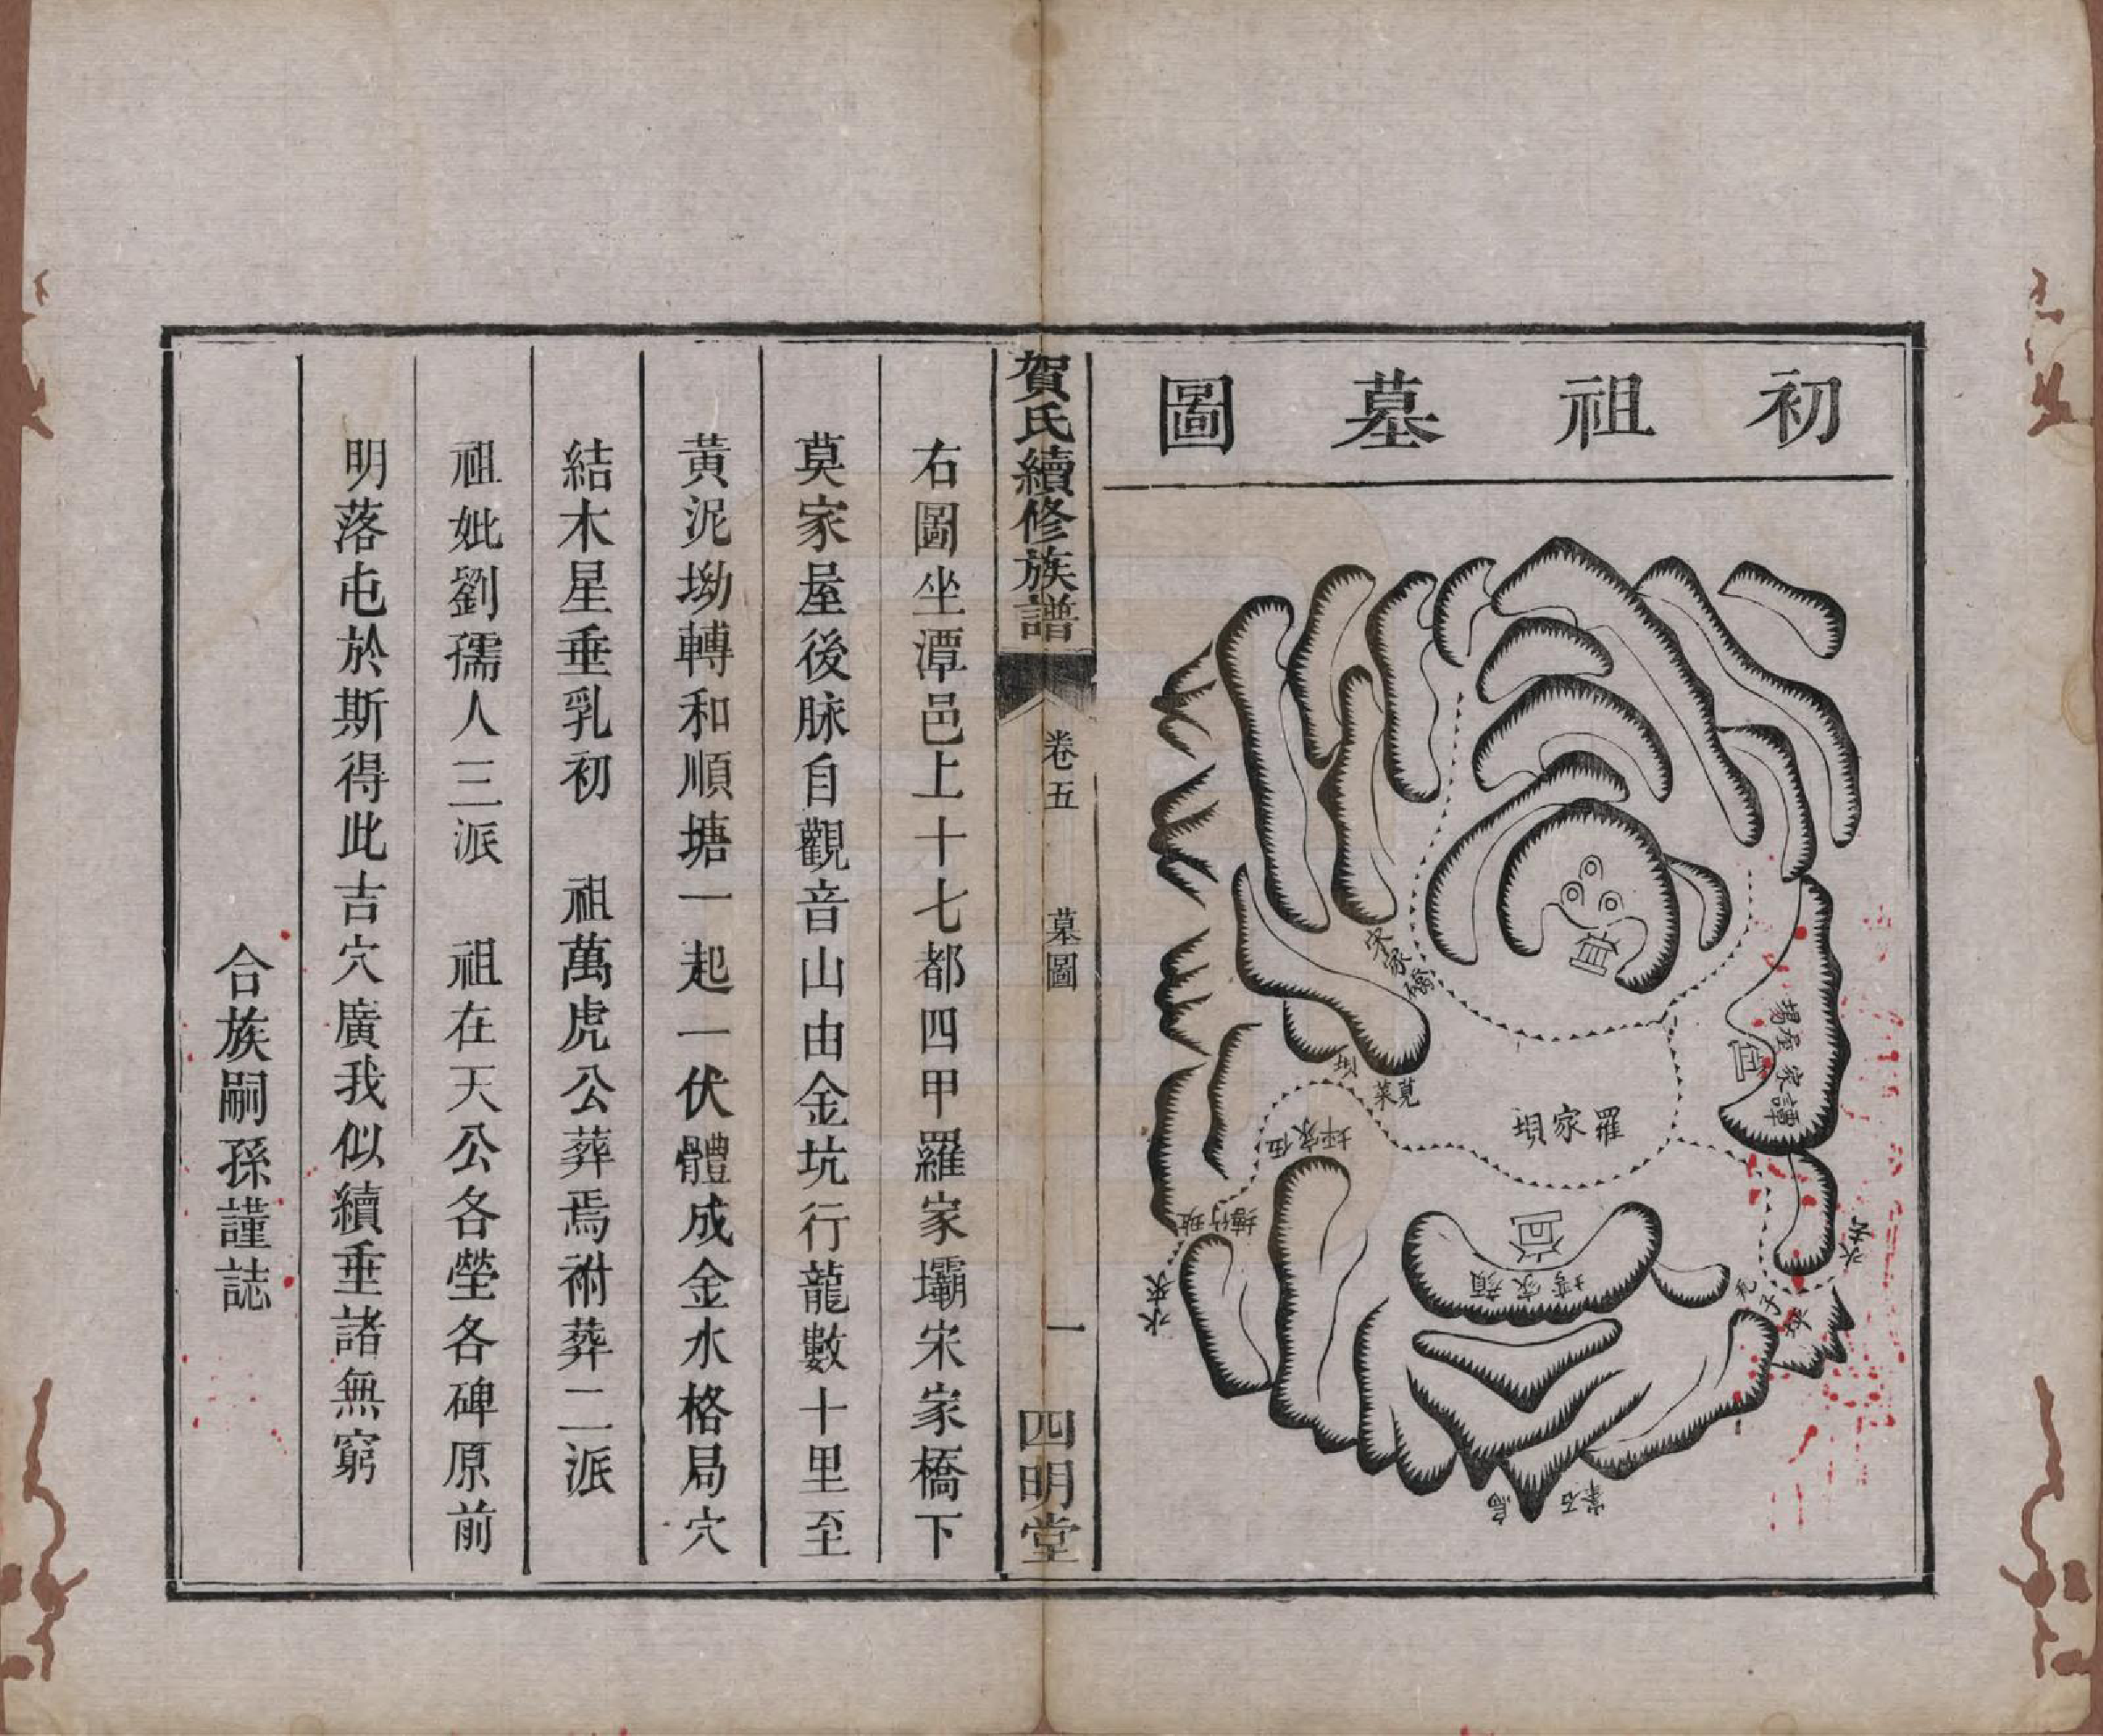 初祖墓圖
宋家橋
譚家屋場
羅家埧
莧菜
埧
伍家坪
顏家塆
水去
水來
石峯
賀氏續修族譜
卷五
墓圖
一
四明堂
右圖坐潭邑上十七都四甲羅家壩宋家橋下
莫家屋後脉自觀音山由金坑行龍數十里至
黃泥坳轉和順塘一起一伏體成金水格局穴
結木星垂乳初　祖萬虎公葬焉祔葬二派
祖妣劉孺人三派　祖在天公各塋各碑原前
明落屯於斯得此吉穴廣我似續垂諸無窮
合族嗣孫謹誌